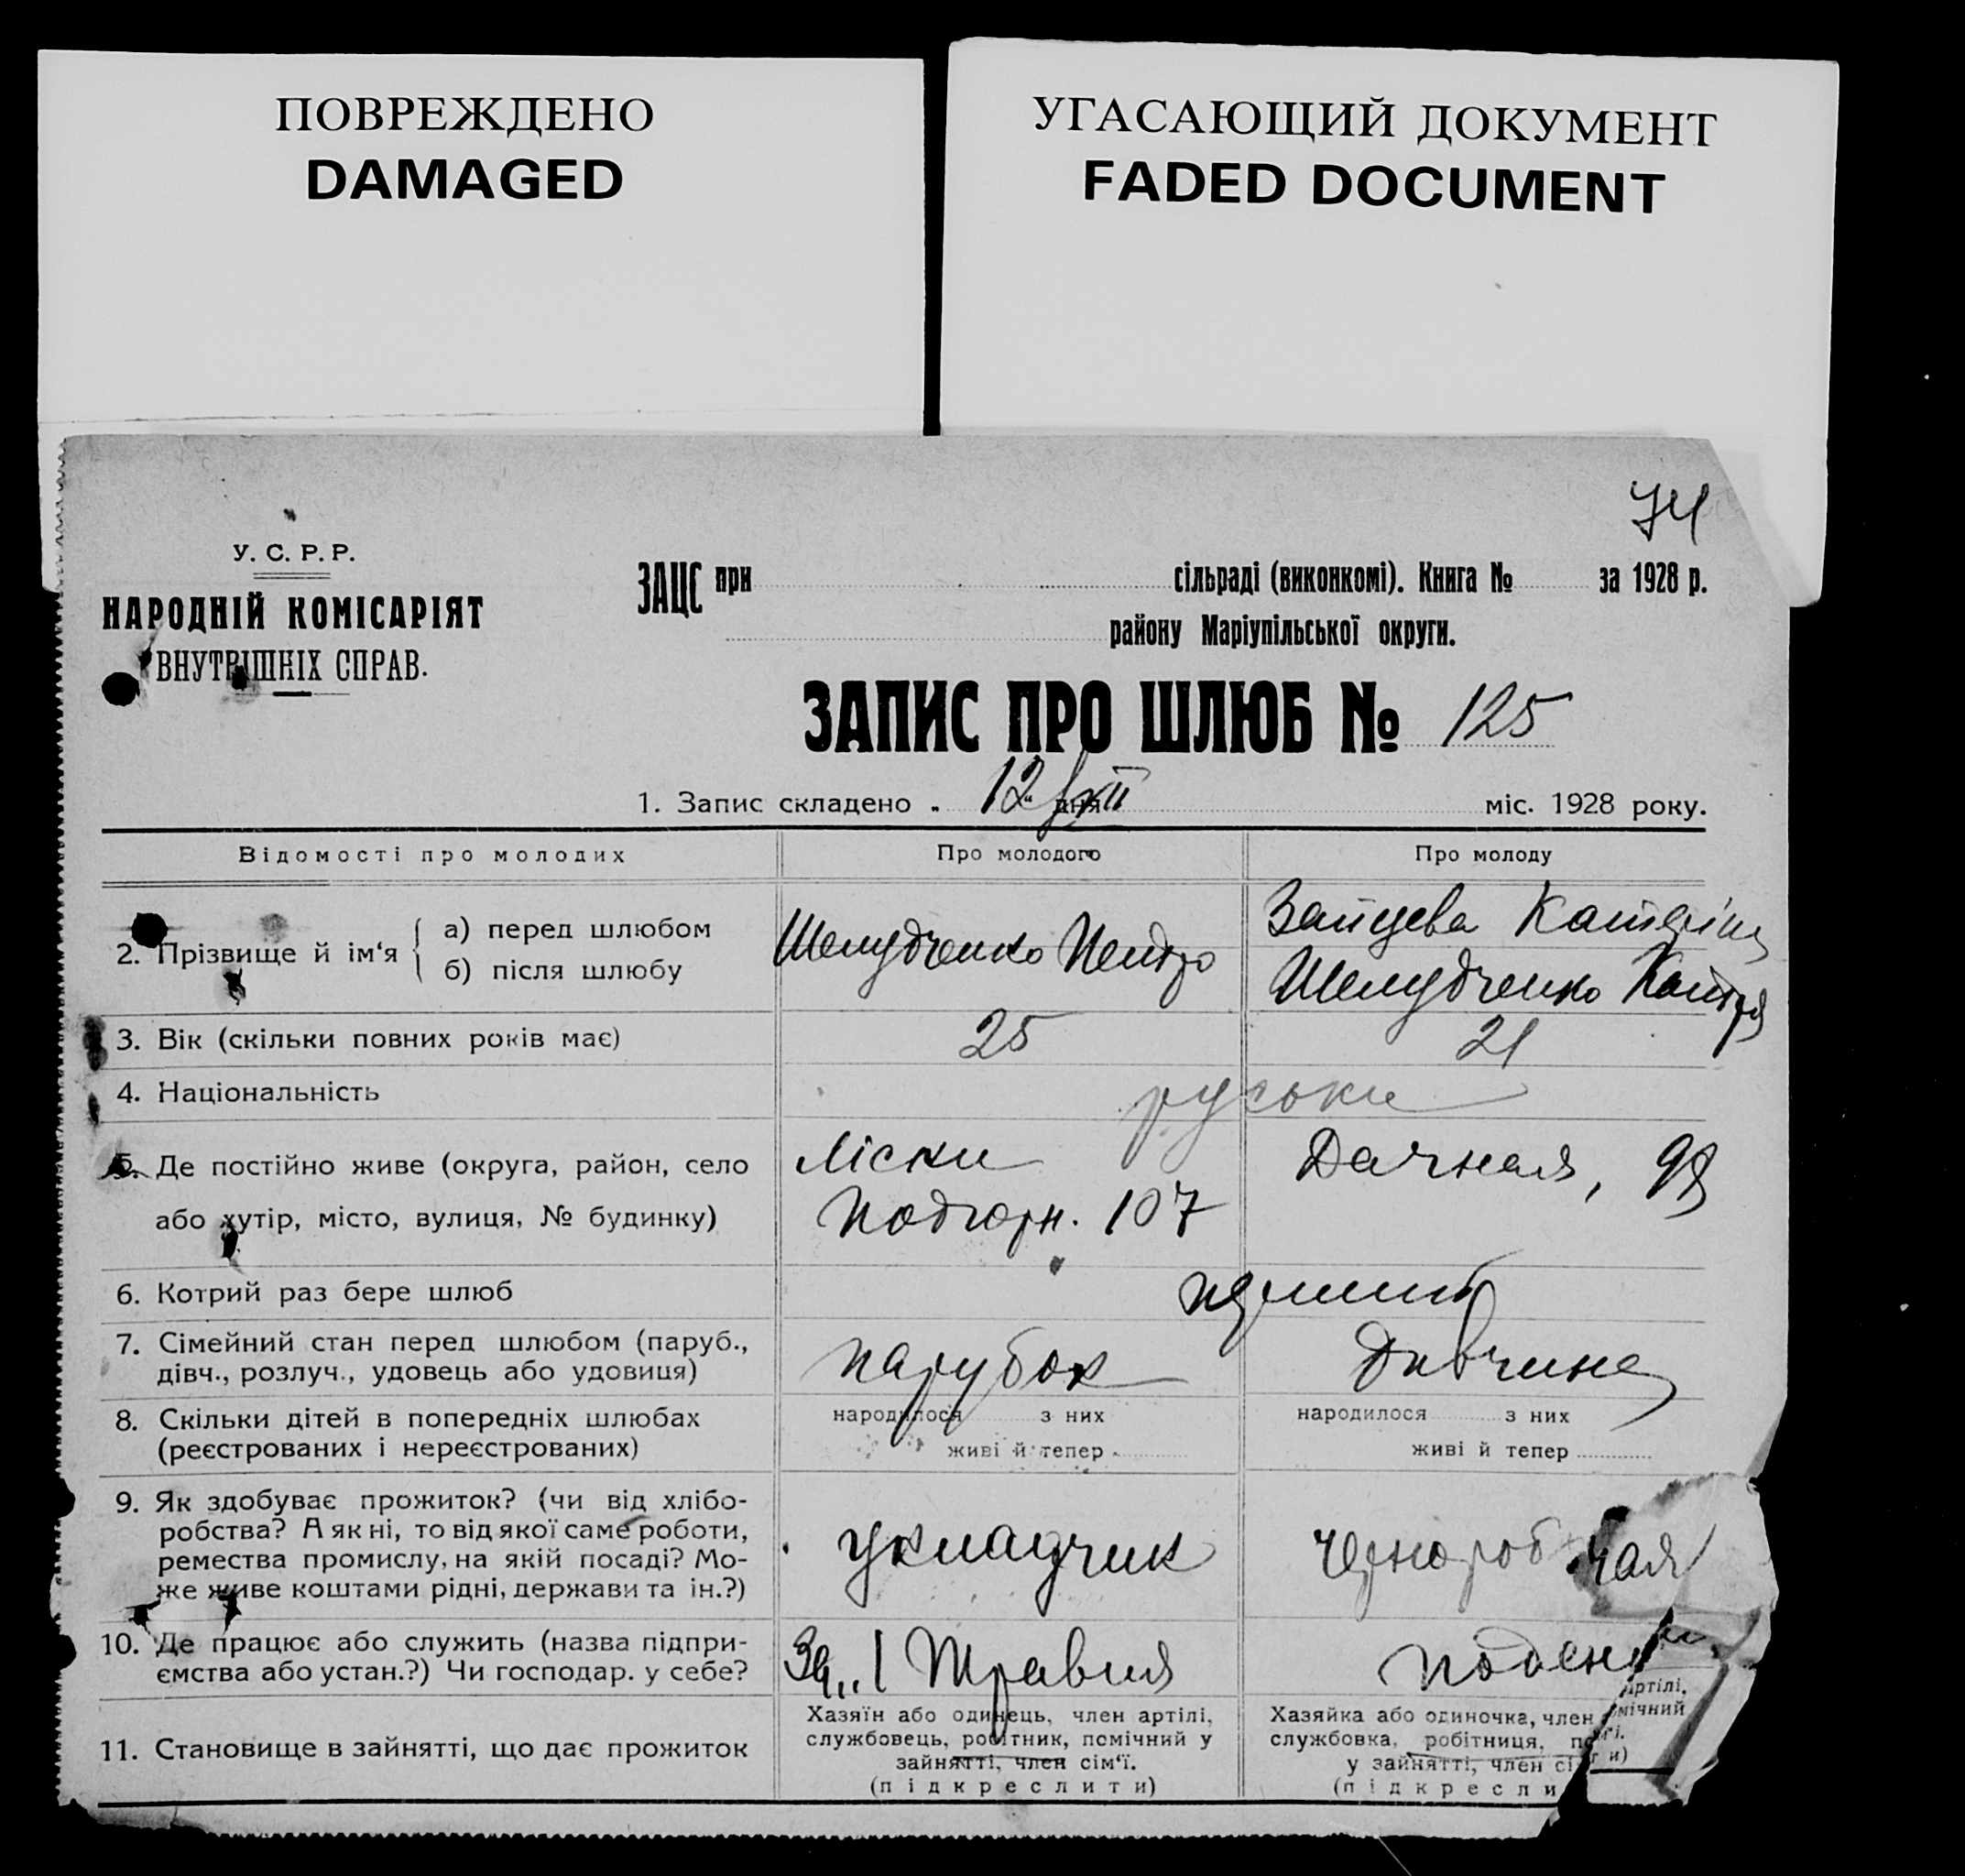 ПОВРЕЖДЕНО
DAMAGED
УГАСАЮЩИЙ ДОКУМЕНТ
FADED DOCUMENT
74
У. С. Р. Р.
НАРОДНІЙ КОМІСАРІЯТ
ВНУТРІШНІХ СПРАВ.
ЗАЦС при сільраді (виконкомі). Книга № за 1928 р.
району Маріупільської округи.
ЗАПИС ПРО ШЛЮБ № 125
1. Запис складено „ 12 “ дня міс. 1928 року.
Відомості про молодих
Про молодого
Про молоду
2. Прізвище й ім‘я
а) перед шлюбом
б) після шлюбу
Шелудченко Пендро
Зайцева Катеріна
Шелудченко Катря
3. Вік (скільки повних років має)
25
21
4. Національність
руськи
5. Де постійно живе (округа, район, село
або хутір, місто, вулиця, № будинку)
Ліски
Подгорн. 107
Дачная, 98
6. Котрий раз бере шлюб
7. Сімейний стан перед шлюбом (паруб.,
дівч., розлуч., удовець або удовиця)
парубок
дивчина
8. Скільки дітей в попередніх шлюбах
(реєстрованих і нереєстрованих)
народилося з них
живі й тепер
народилося з них
живі й тепер
9. Як здобуває прожиток? (чи від хлібо-
робства? А як ні, то від якої саме роботи,
ремества промислу, на якій посаді? Мо-
же живе коштами рідні, держави та ін.?)
укладчик
10. Де працює або служить (назва підпри-
ємства або устан.?) Чи господар. у себе?
1 Травня
11. Становище в зайнятті, що дає прожиток
Хазяїн або одинець, член артілі,
службовець, робітник, помічний у
зайнятті, член сім‘ї.
(підкреслити)
Хазяйка або одиночка, член артілі,
службовка, робітниця, помічний
у зайнятті, член сі
(підкреслити)